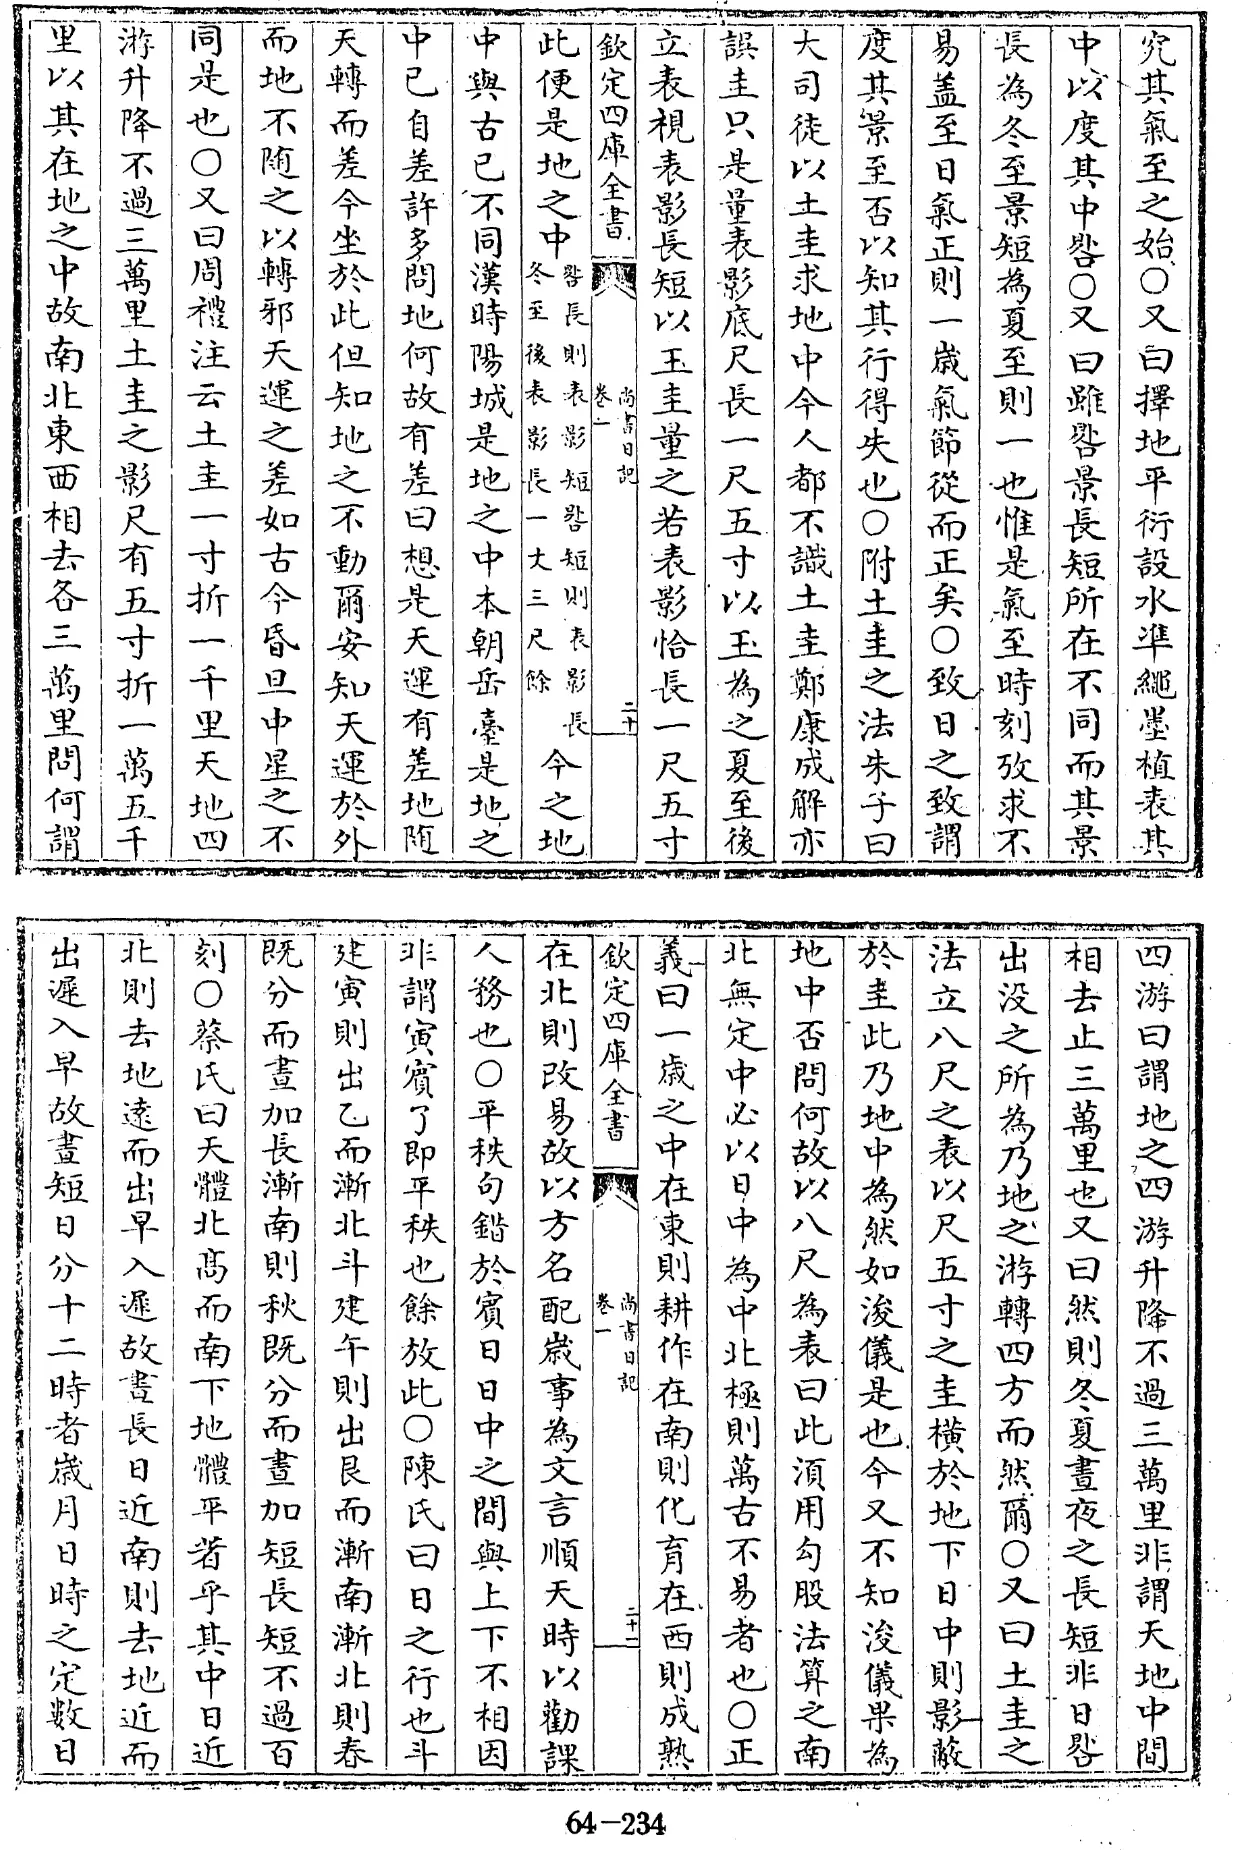 究其氣至之始○又曰擇地平衍設水準繩墨植表其
中以度其中晷○又曰雖晷景長短所在不同而其景
長為冬至景短為夏至則一也惟是氣至時刻攷求不
易蓋至日氣正則一歲氣節從而正矣○致日之致謂
度其景至否以知其行得失也○附土圭之法朱子曰
大司徒以土圭求地中今人都不識土圭鄭康成解亦
誤圭只是量表影底尺長一尺五寸以玉為之夏至後
立表視表影長短以玉圭量之若表影恰長一尺五寸
欽定四庫全書
尚書日記
卷一
二十
此便是地之中
晷長則表影短晷短則表影長
冬至後表影長一丈三尺餘
今之地
中與古已不同漢時陽城是地之中本朝岳臺是地之
中已自差許多問地何故有差曰想是天運有差地隨
天轉而差今坐於此但知地之不動爾安知天運於外
而地不隨之以轉邪天運之差如古今昏旦中星之不
同是也○又曰周禮注云土圭一寸折一千里天地四
游升降不過三萬里土圭之影尺有五寸折一萬五千
里以其在地之中故南北東西相去各三萬里問何謂
四游曰謂地之四游升降不過三萬里非謂天地中間
相去止三萬里也又曰然則冬夏晝夜之長短非日晷
出没之所為乃地之游轉四方而然爾○又曰土圭之
法立八尺之表以尺五寸之圭橫於地下日中則影蔽
於圭此乃地中為然如浚儀是也今又不知浚儀果為
地中否問何故以八尺為表曰此須用勾股法算之南
北無定中必以日中為中北極則萬古不易者也○正
義曰一歲之中在東則耕作在南則化育在西則成熟
欽定四庫全書
尚書日記
卷一
二十一
在北則改易故以方名配歲事為文言順天時以勸課
人務也○平秩句錯於賓日日中之間與上下不相因
非謂寅賓了即平秩也餘放此○陳氏曰日之行也斗
建寅則出乙而漸北斗建午則出艮而漸南漸北則春
既分而晝加長漸南則秋既分而晝加短長短不過百
刻○蔡氏曰天體北高而南下地體平着乎其中日近
北則去地遠而出早入遲故晝長日近南則去地近而
出遲入早故晝短日分十二時者歲月日時之定數日
64-234